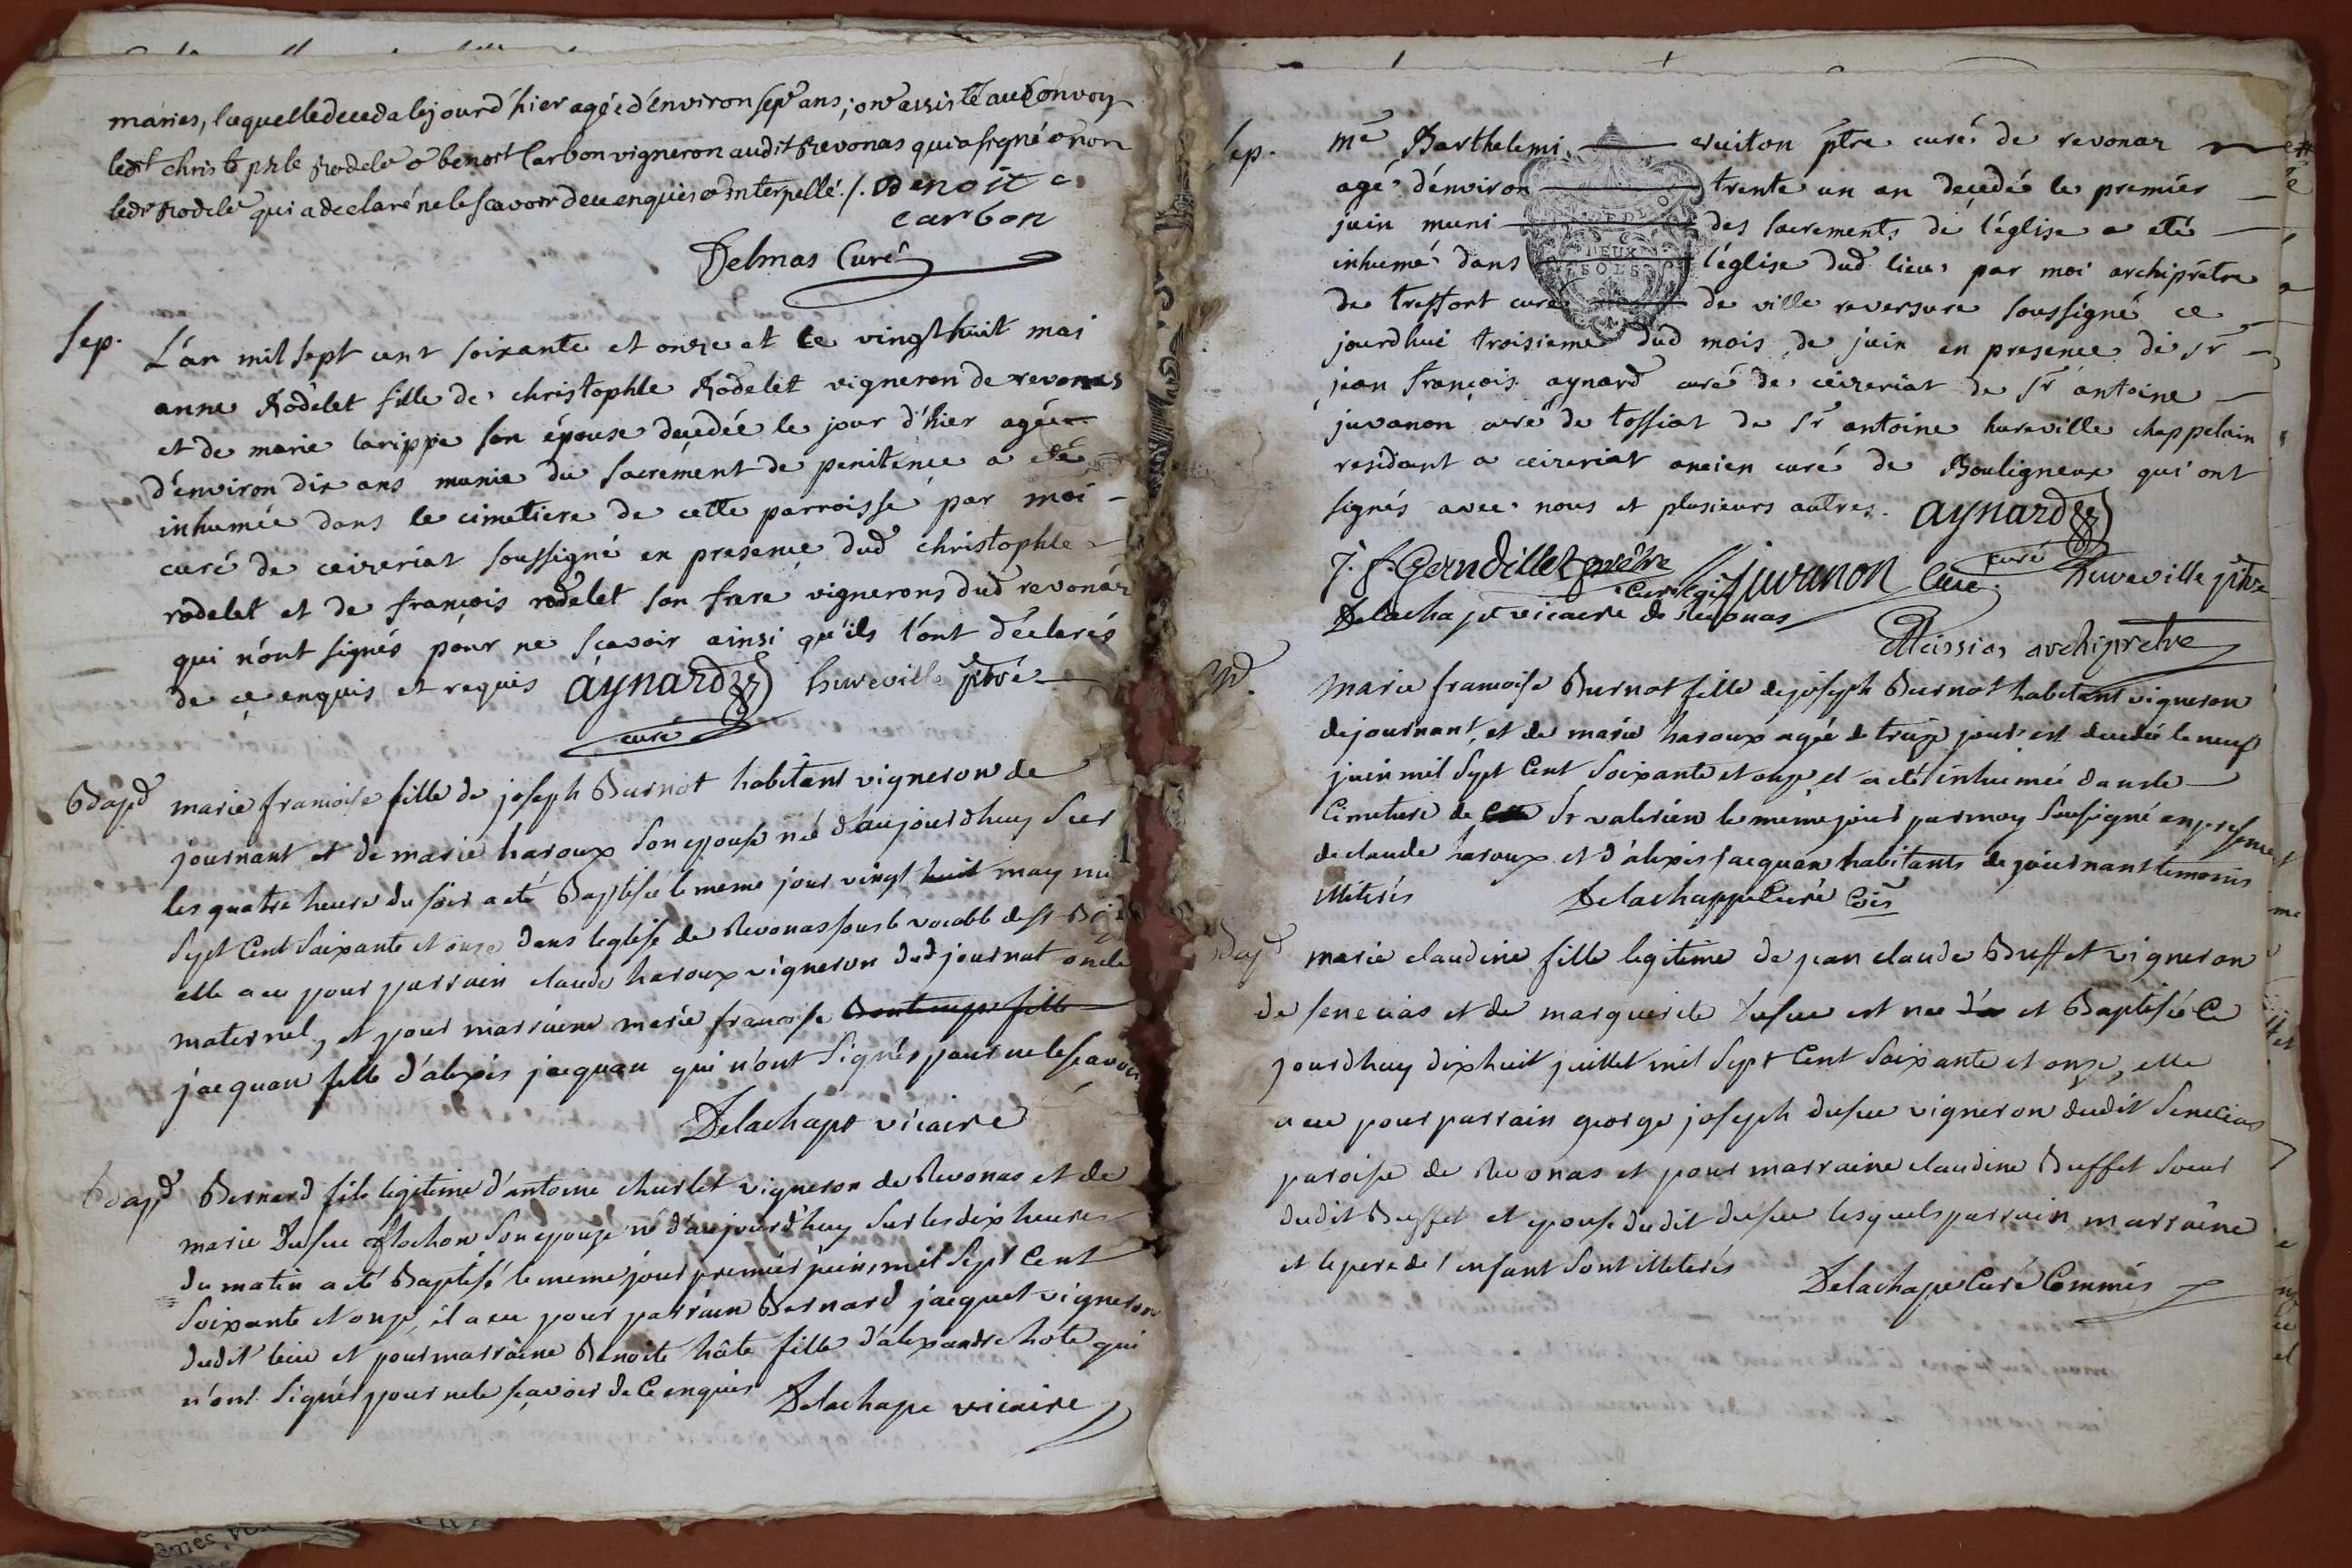 maries, laquelle deceda le jour d'hier agée d'environ sept ans; ont assisté au convoy
ledt christophle Rodelet & benoit Carbon vigneron audit Revonas qui a signé & non
ledt Rodelet qui a declaré ne le scavoir de ce enquis & interpellé ./. Benoit
carbon
Delmas Curé
Sep. L'an mil sept cent soixante et onze et le vingt huit mai
anne Rodelet fille de christophle Rodelet vigneron de revonas
et de marie larippe son épouse decedée le jour d'hier agée
d'environ dix ans munie du sacrement de penitence a été
inhumée dans le cimetiere de cette parroisse par moi
curé de ceizeriat soussigné en presence dud christophle
rodelet et de françois rodelet son frere vignerons dud revonaz
qui n'ont signés pour ne sçavoir ainsi qu'ils l'ont déclarés
de ce enquis et requis aynard hureville ptre
curé
Bapd marie francoise fille de joseph Burnot habitant vigneron de
journant et de marie haroux son epouse née d'aujourdhuy sur
les quatre heure du soir a eté Baptisée le meme jour vingt huit may mil
Sept Cent Soixante et onze dans leglise de Revonas sous le vocable de st
elle a eu pour parrain claude haroux vigneron dud journat oncle
maternel, et pour marraine marie francoise
jacquan fille d'alexis jacquan qui n'ont signés pour ne le scavoir
Delachape vicaire
Bapd Bernard fils legitime d'antoine churlet vigneron de Revonas et de
marie Dufue flochon son epouse né d'aujourd'huy sur les dix heures
du matin a eté Baptisé le meme jour premier juin mil Sept Cent
Soixante et onze, il a eu pour parrain Bernard jacquet vigneron
dudit lieu et pour marraine Benoite hôte fille d'alexandre hote qui
n'ont Signés pour ne le sçavoir de Ce enquis Delachape vicaire
Sep. me Barthelemi cruiton ptre curé de revonaz
agé d'environ trente un an decedé le premier
juin muni des sacrements de l'église a été
inhumé dans l'église dud lieu par moi archiprêtre
de treffort curé de ville reversure soussigné ce
jourdhui troisieme dud mois de juin en presence de sr
jean françois aynard curé de ceizeriat de sr antoine
juvanon curé de tossiat de sr antoine hureville chappelain
residant a ceizeriat ancien curé de Bouligneux qui ont
signés avec nous et plusieurs autres. aynard
curé
J. f. Gerndillet prêtre juvanon Curé hureville ptre
Delachape vicaire de Revonas
archiprêtre
DEUX
SOLS
marie francoise Burnot fille de joseph Burnot habitant vigneron
de journant, et de marie haroux agée de treize jours est decedée le neuf
juin mil Sept Cent Soixante et onze et a eté inhumée dans le
Cimetiere de St valerien le meme jour par moy Sousigné en presence
de claude haroux et d'alexis jacquan habitants de journant temoins
illiterés Delachappe Curé Com
Bapd marie claudine fille legitime de jean claude Buffet vigneron
de senecias et de marguerite Dufue est née et Baptisée Ce
jourdhuy dixhuit juillet mil Sept Cent Soixante et onze, elle
a eu pour parrain george joseph dufue vigneron dudit Senecias
paroisse de Revonas et pour marraine claudine Buffet soeur
dudit Buffet et epouse dudit dufue lesquels parrain marraine
et le pere de l'enfant Sont illiterés Delachape Curé Commis